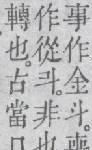 事作金斗。
作從斗。非也
轉也。古當